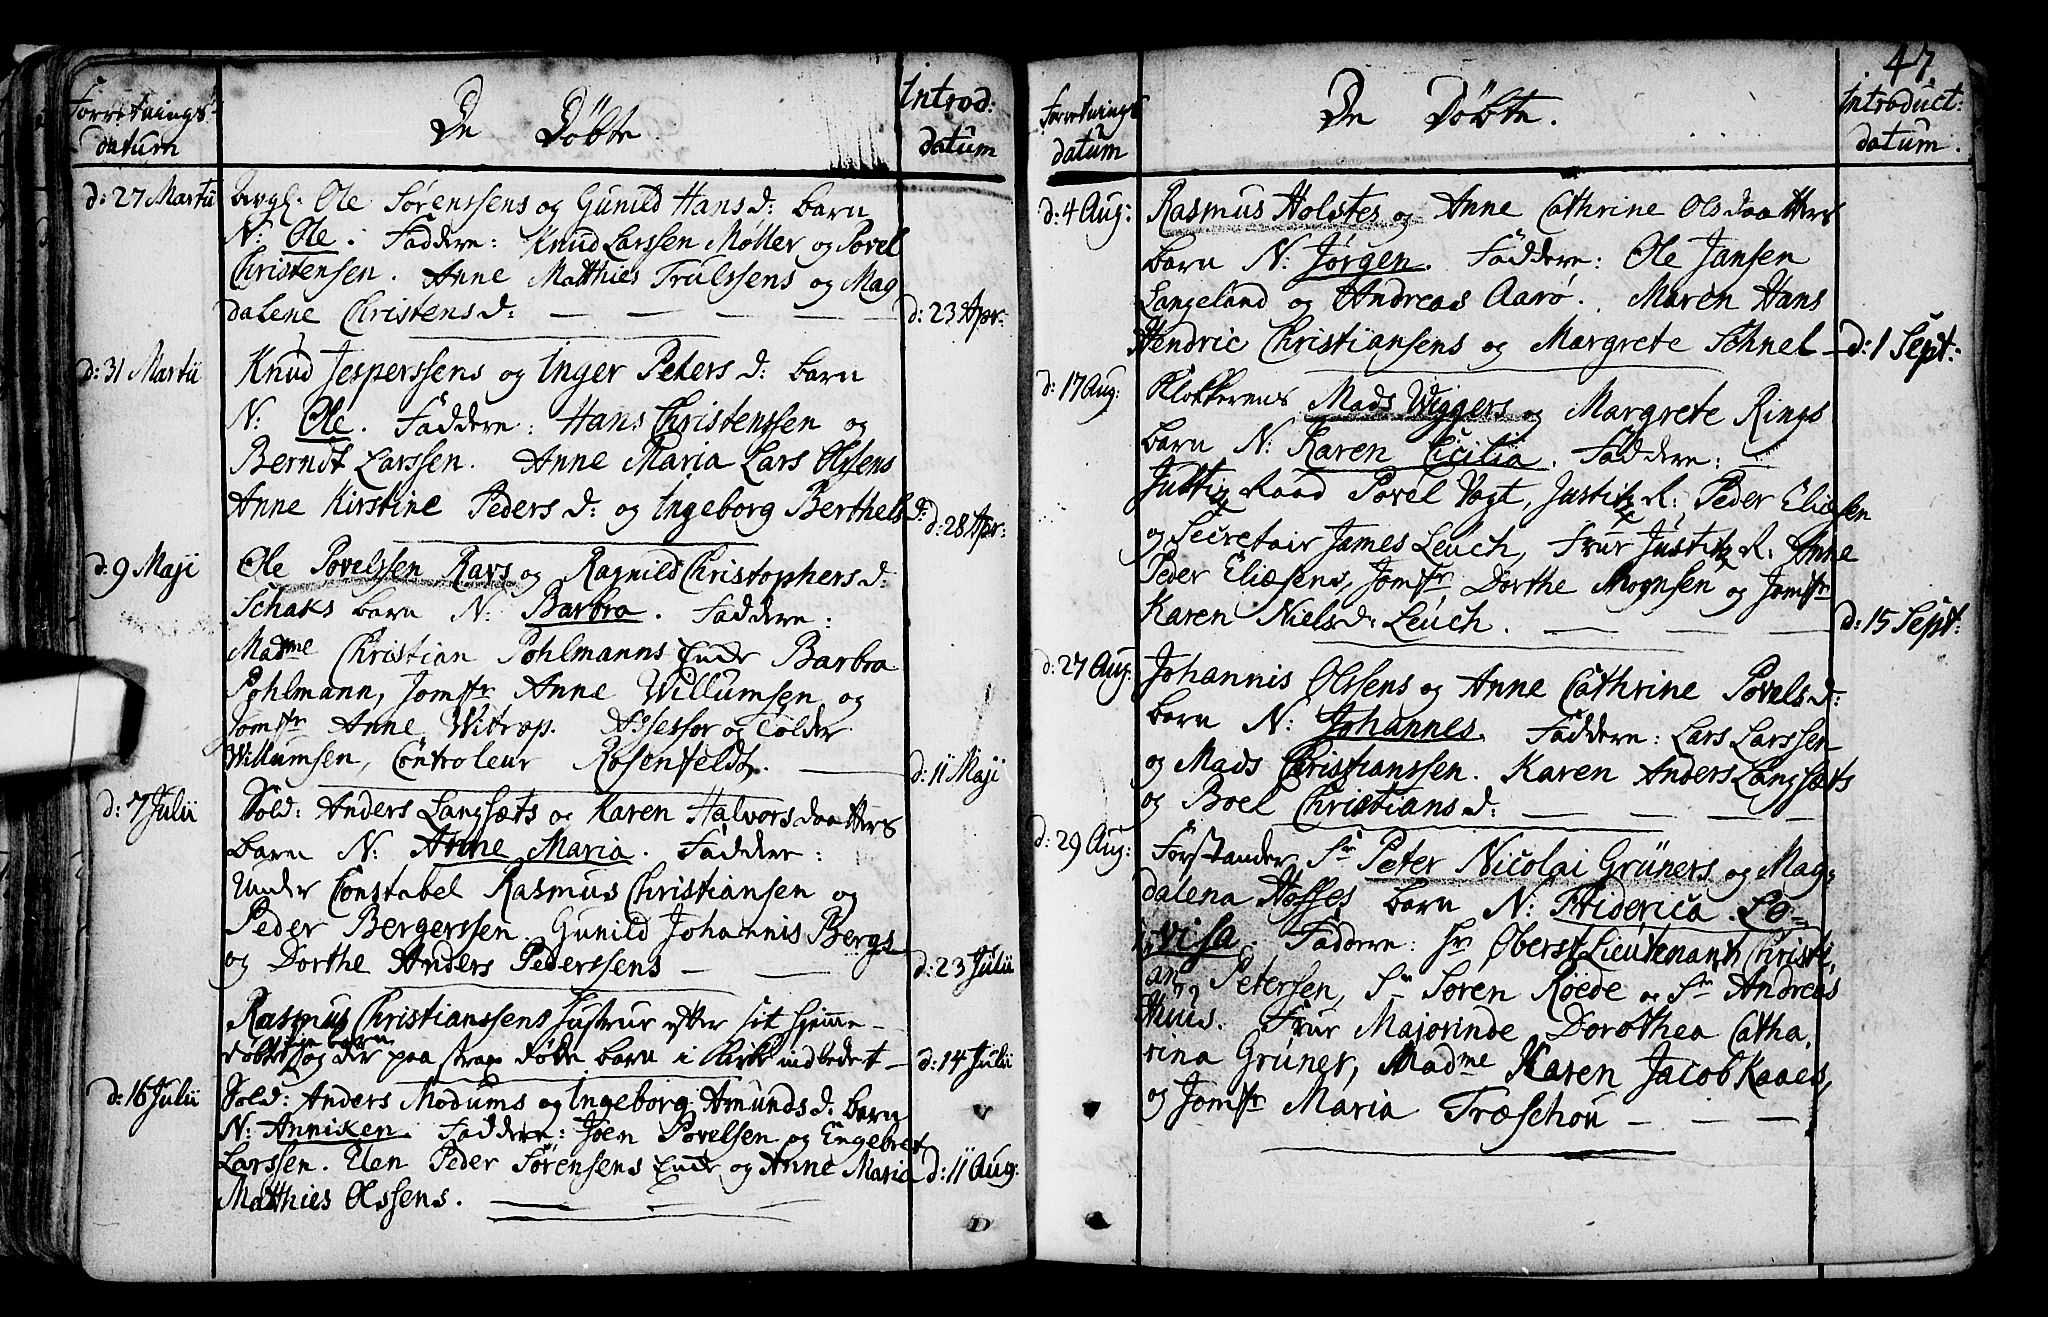 Forretnings
datum
De Döbte.
Introd:
datum
d: 27 Martii
bergh. Ole Sørenssens og Gunild Hans d: barn
N: Ole. Faddere: Knud Larssen Møller og Povel
Christensen. Anne Matthies Trulssens og Mag
dalene Christens d:
d: 23 Apr:
d: 31 Martii
Knud Jesperssens og Inger Peters d: barn
N: Ole. Faddere: Hans Christenssen og
Berndt Larssen. Anne Maria Lars Olssens
Anne Kirstine Peders d: og Ingeborg Berthels d:
d: 28 Apr:
d: 9 Maji
Ole Povelssen Ravs og Ragnild Christophers d:
Schaks barn N: Barbra. Faddere:
Madme Christian Pohlmanns Enche Barbra
Pohlmann, Jomfr Anne Willumsen og
Jomfr Anne Wistrop. Assessor og Tolder
Willumsen, Controleur Rosenfeldt.
d: 11 Maji
d: 7 Julii
Sold: Anders Langsæts og Karen Halvorsdaatters
barn N: Anne Maria. Faddere:
Under Constabel Rasmus Christiansen og
Peder Bergerssen. Gunild Johannis Bergs
og Dorthe Anders Pederssens
d: 23 Julii
Rasmus Christianssens hustrue efter sit hjemme
döbte og der paa strax döde barn i Kirke indledet
d: 14 Julii
d: 16 Julii
Sold: Anders Modums og Ingeborg Amunds d: barn
N: Anniken. Faddere: Joen Povelsen og Engebret
Larssen. Elen Peder Sørensens Enche og Anne Maria
Matthies Olssens.
d: 11 Aug:
47.
Forretnings
datum
De Döbte.
Introduct:
datum.
d: 4 Aug:
Rasmus Holstes og Anne Cathrine Olsdaatters
barn N: Jørgen. Faddere: Ole Jansen
Langeland og Andreas Aarø. Maren Hans
Hendric Christiansens og Margrete Schnel
d: 1 Sept:
d: 17 Aug:
Klokkerens Mads Wiggers og Margrete Rings
barn N: Karen Cicilia. Faddere:
Justitz Raad Povel Vogt, Justitz R: Peder Eliesen
og Secretair James Leuch, Frue Justitz R: Anne
Peder Eliæsens, Jomfr Dorthe Mognsen og Jomfr
Karen Niels d: Leuch.
d: 15 Sept:
d: 27 Aug:
Johannis Olssens og Anne Cathrine Povels d:
barn N: Johannes. Faddere: Lars Larssen
og Mads Christianssen. Karen Anders Langsæts
og Boel Christians d:
d: 29 Aug:
Forstander Sr Peter Nicolai Grüners og Mag,
dalena Hoffes barn N: Friderica Lo-
visa. Faddere: Hr Oberst Lieutenant Christi,
an Petersen, Sr Søren Röede og Sr Andreas
Huus. Frue Majorinde Dorothea Catha,
rina Grüner, Madme Karen Jacob Kaaes,
og Jomfr Maria Træschou